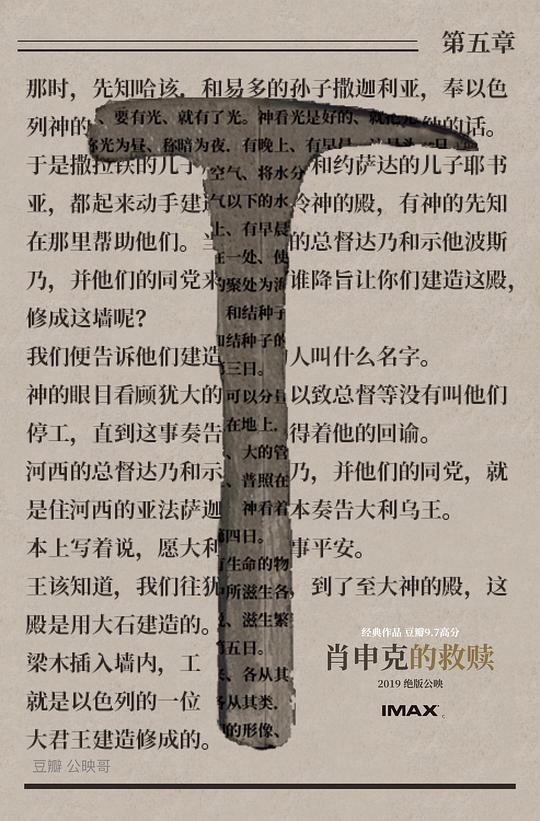 第五章
那时，先知哈该．和易多的孙子撒迦利亚，奉以色
列神的
的话。
于是撒拉铁的儿子
和约萨达的儿子耶书
亚，都起来动手建
冷神的殿，有神的先知
在那里帮助他们。当
的总督达乃和示他波斯
乃，并他们的同党来
谁降旨让你们建造这殿，
修成这墙呢？
我们便告诉他们建造
人叫什么名字。
神的眼目看顾犹大的
以致总督等没有叫他们
停工，直到这事奏告
得着他的回谕。
河西的总督达乃和示
乃，并他们的同党，就
是住河西的亚法萨迦
本奏告大利乌王。
本上写着说，愿大利
事平安。
王该知道，我们往犹
，到了至大神的殿，这
殿是用大石建造的。
梁木插入墙内，工
就是以色列的一位
大君王建造修成的。
、要有光、就有了光。神看光是好的、就把光
光为昼、称暗为夜．有晚上、有早晨
空气、将水分
气以下的水
上、有早晨
在一处、使
的聚处为海
和结种子
和结种子的
三日。
可以分昼
在地上．
、大的管
、普照在
神看着
第四日。
有生命的物
中所滋生各
、滋生繁
第五日。
、各从其
各从其类．
的形像、
经典作品 豆瓣9.7高分
肖申克的救赎
2019 绝版公映
IMAX
豆瓣 公映哥